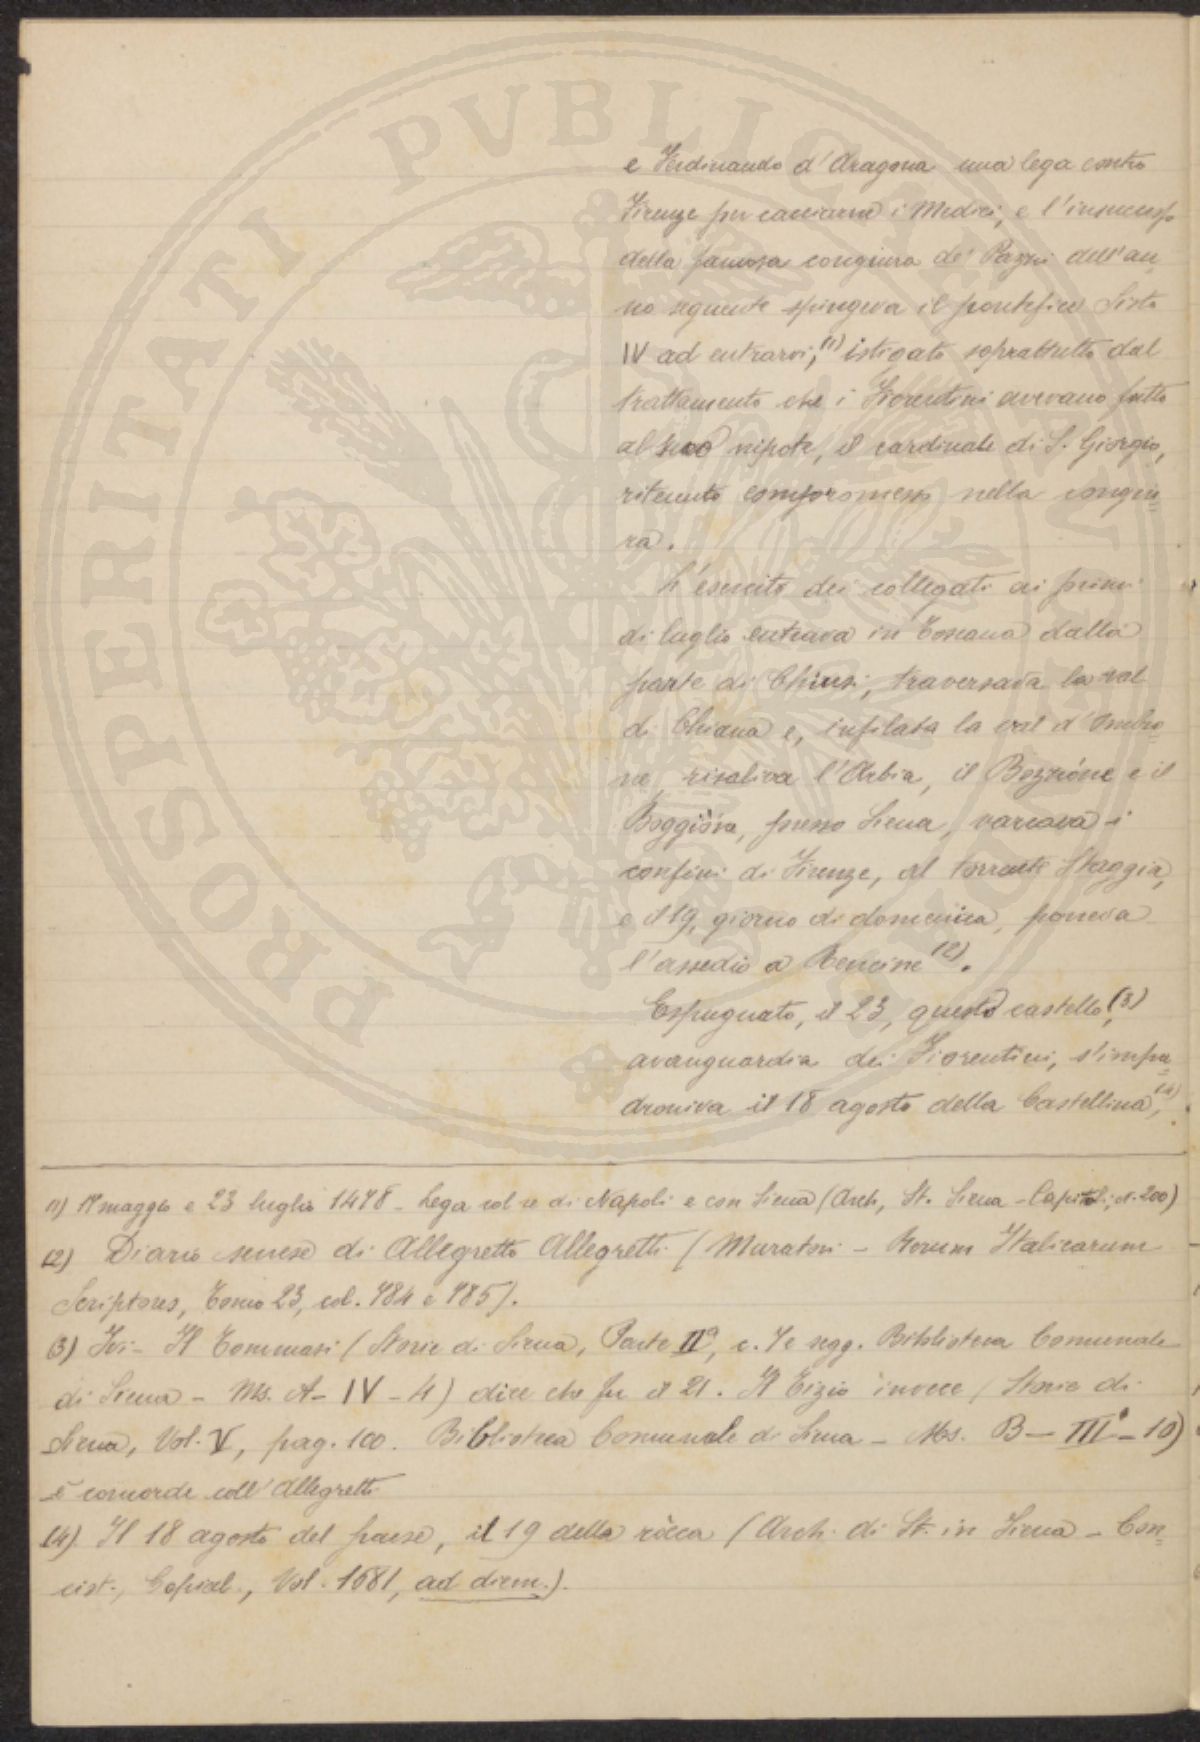 e Ferdinando d'Aragona una lega contro
Firenze per cacciarne i Medici, e l'insuccesso
della famosa congiura de' Pazzi dell'an
no seguente spingeva il pontefice Sisto
IV ad entrarvi,(1) istigato soprattutto dal
trattamento che i Fiorentini avevano fatto
al suo nipote, il cardinale di S. Giorgio,
ritenuto compromesso nella congiu=
ra.
L'esercito dei collegati ai primi
di luglio entrava in Toscana dalla
parte di Chiusi, traversava la val
di Chiana e, infilata la val d'Ombro=
ne, risaliva l'Arbia, il Bozzóne e il
Boggióne, presso Siena, varcava i
confini di Firenze, al torrente Staggia,
e il 19, giorno di domenica, poneva
l'assedio a Rencine(2).
Espugnato, il 23, questo castello,(3)
avanguardia dei Fiorentini, s'impa=
droniva il 18 agosto della Castellina,(4)
(1) 17 maggio e 23 luglio 1478 - Lega col re di Napoli e con Siena (Arch. St. Siena - Capitoli, n. 200)
(2) Diario senese di Allegretto Allegretti (Muratori - Rerum Italicarum
Scriptores, Tomo 23, col. 784 e 785).
(3) Ivi - Il Tommasi (Storie di Siena, Parte IIª, c. 7 e segg. Biblioteca Comunale
di Siena - Ms. A - IV - 4) dice che fu il 21. Il Tizio invece (Storie di
Siena, Vol. V, pag. 100. Biblioteca Comunale di Siena - Ms. B - III - 10)
è concorde coll'Allegretti.
(4) Il 18 agosto del paese, il 19 della ròcca (Arch. di St. in Siena - Con=
cist., Copial., Vol. 1681, ad diem.).
PROSPERITATI PVBLICAE